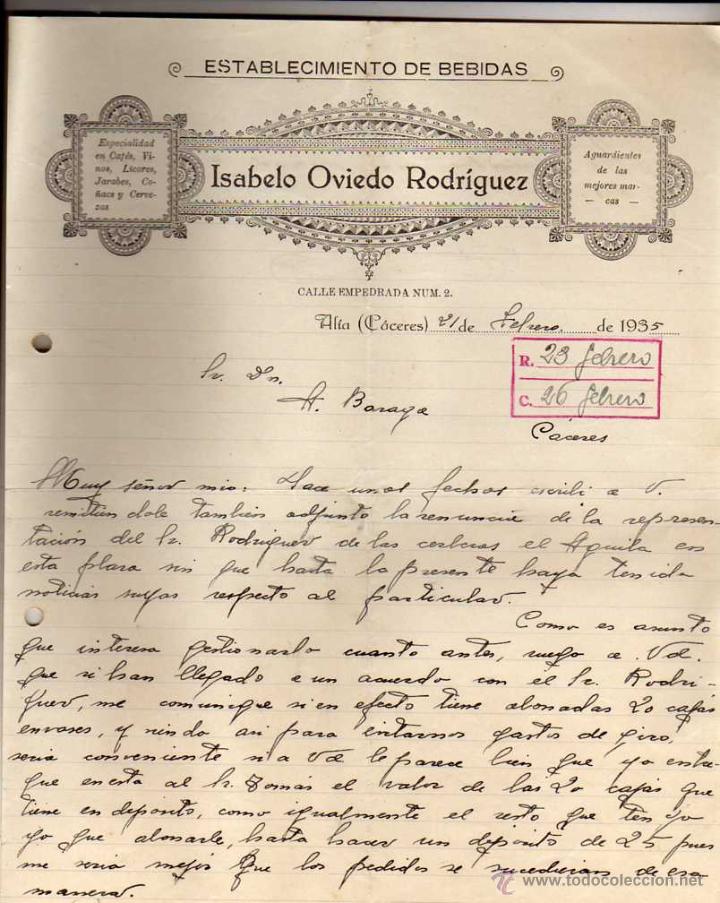 ESTABLECIMIENTO DE BEBIDAS
Especialidad
en Cafés, Vi-
nos, Licores,
Jarabes, Co-
ñacs y Cerve-
zas
Isabelo Oviedo Rodríguez
Aguardientes
de las
mejores mar-
— cas —
CALLE EMPEDRADA NUM. 2.
Alía (Cáceres) 21 de Febrero de 1935
R. 23 febrero
C. 26 febrero
Sr. Dn.
A. Baraga
Cáceres
Muy señor mio: Hace unas fechas escribi a V.
remitiendole tambien adjunto la renuncia de la represen-
tación del Sr. Rodriguez de las cervezas el Aguila en
esta plaza sin que hasta la presente haya tenido
noticias suyas respecto al particular.
Como es asunto
que interesa gestionarlo cuanto antes, ruego a Vd.
que si han llegado a un acuerdo con el Sr. Rodri-
guez, me comunique si en efecto tiene abonadas 20 cajas
envases, y siendo asi para evitarnos gastos de giro,
seria conveniente si a Vd le parece bien que yo entre-
gue en esta al Sr. Tomás el valor de las 20 cajas que
tiene en depósito, como igualmente el resto que tengo
yo que abonarle, hasta hacer un depósito de 25 pues
me seria mejor que los pedidos se sucedieran de esa
manera.
www.todocoleccion.net